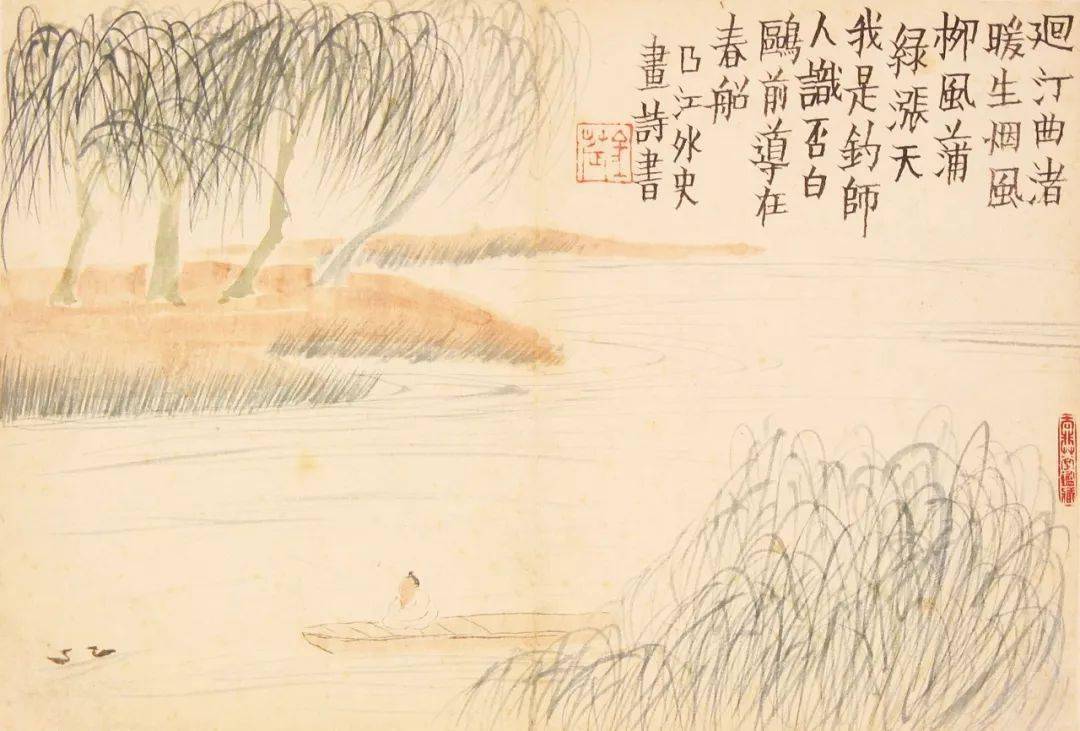 廻汀曲渚
暖生烟風
柳風蒲
緑漲天
我是釣師
人識否白
鷗前導在
春船
江外史
畫詩書